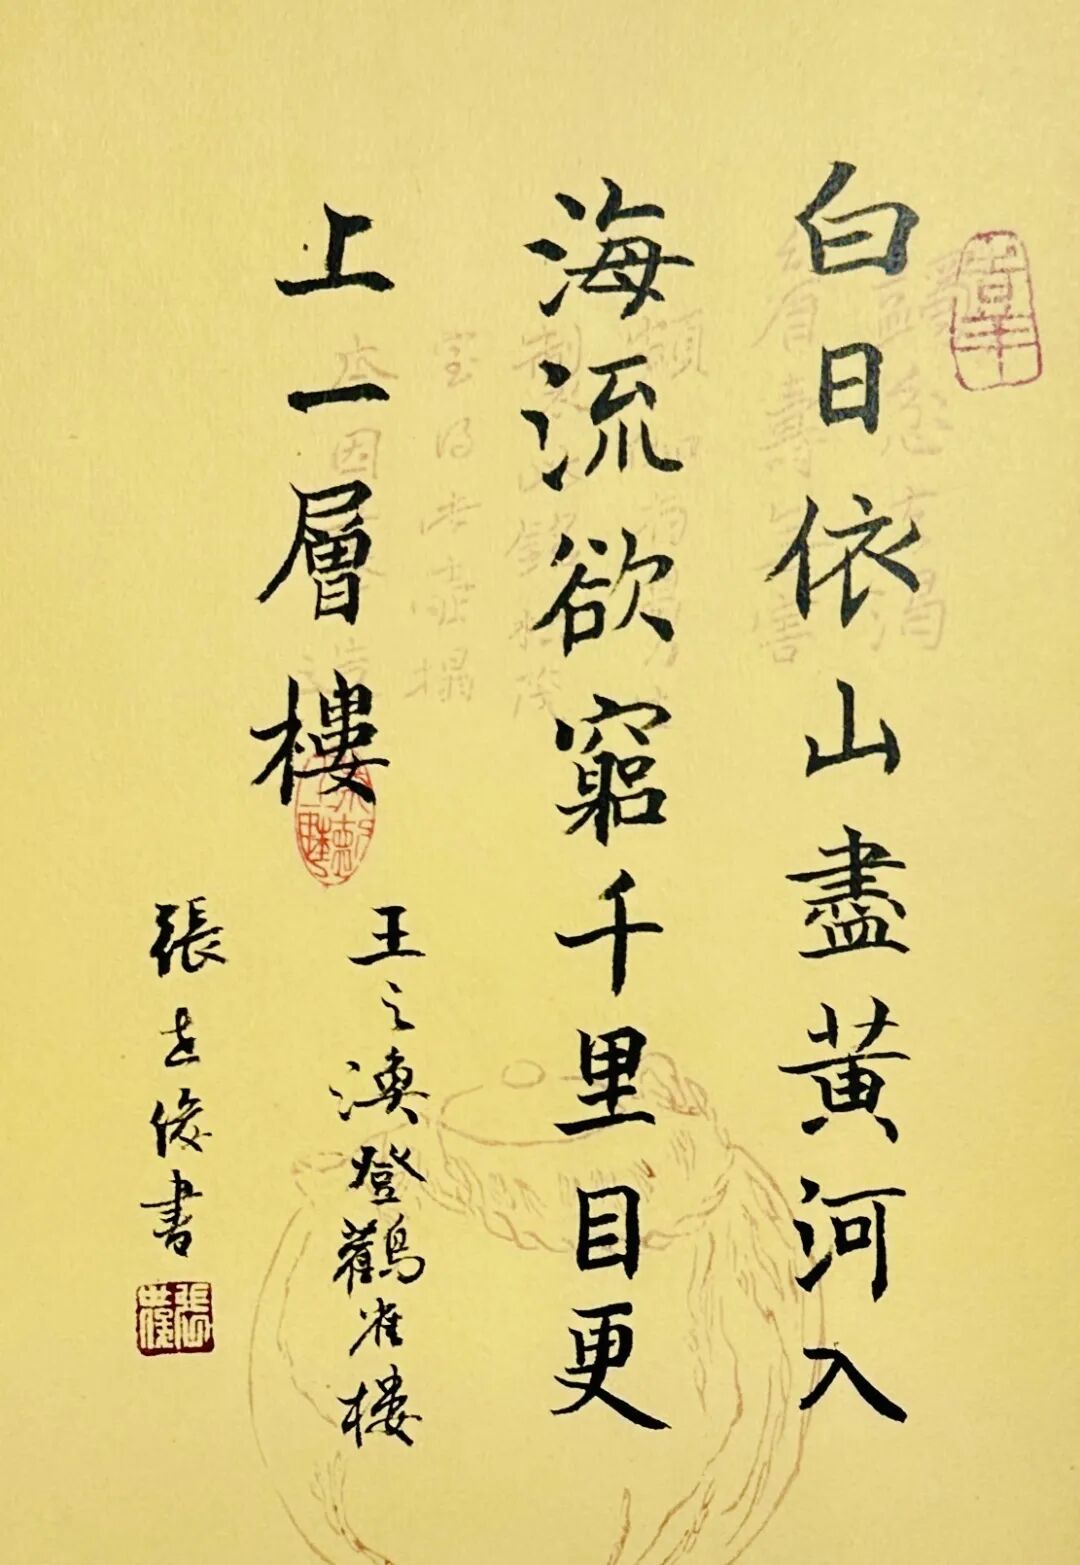 白日依山盡黄河入
海流欲窮千里目更
上一層樓
王之渙登鸛雀樓
張世俊書